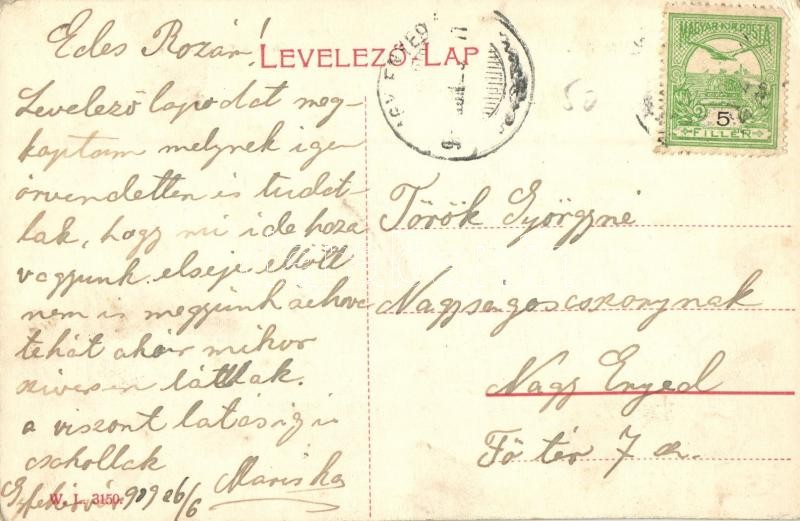 Edes Rozám!
LEVELEZŐ-LAP
Levelező lapodat meg-
kaptam melynek igen
örvendettem is tudat-
lak, hogy mi ide hoza
vagyunk elseje előtt
nem is megyünk sehova
tehát akár mikor
szivesen látlak.
a viszont latásig is
cschollak
Mariska
Gy fehérvár 909 26/6
W. L. 3150.
NAGY ENYED
50
MAGYAR KIR. POSTA
5
FILLÉR
Török Györgyné
Nagyságos csszonynak
Nagy Enyed
Fő tér 7 sz.